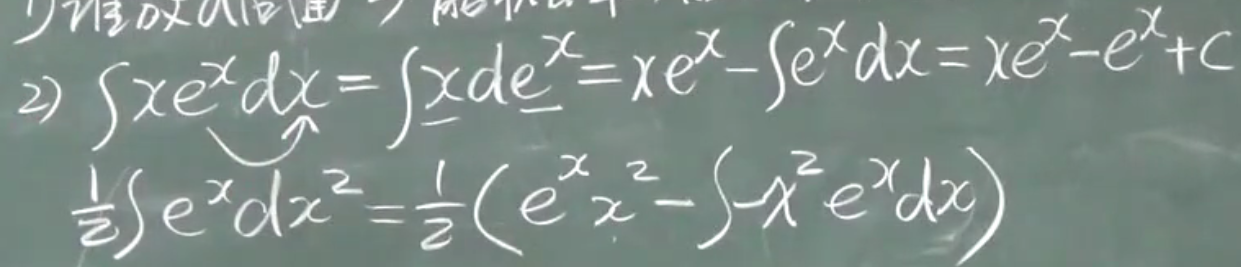 1) 谁放d后面
2) ∫xeˣdx = ∫xdeˣ = xeˣ - ∫eˣdx = xeˣ - eˣ + C
½∫eˣdx² = ½(eˣx² - ∫x²eˣdx)